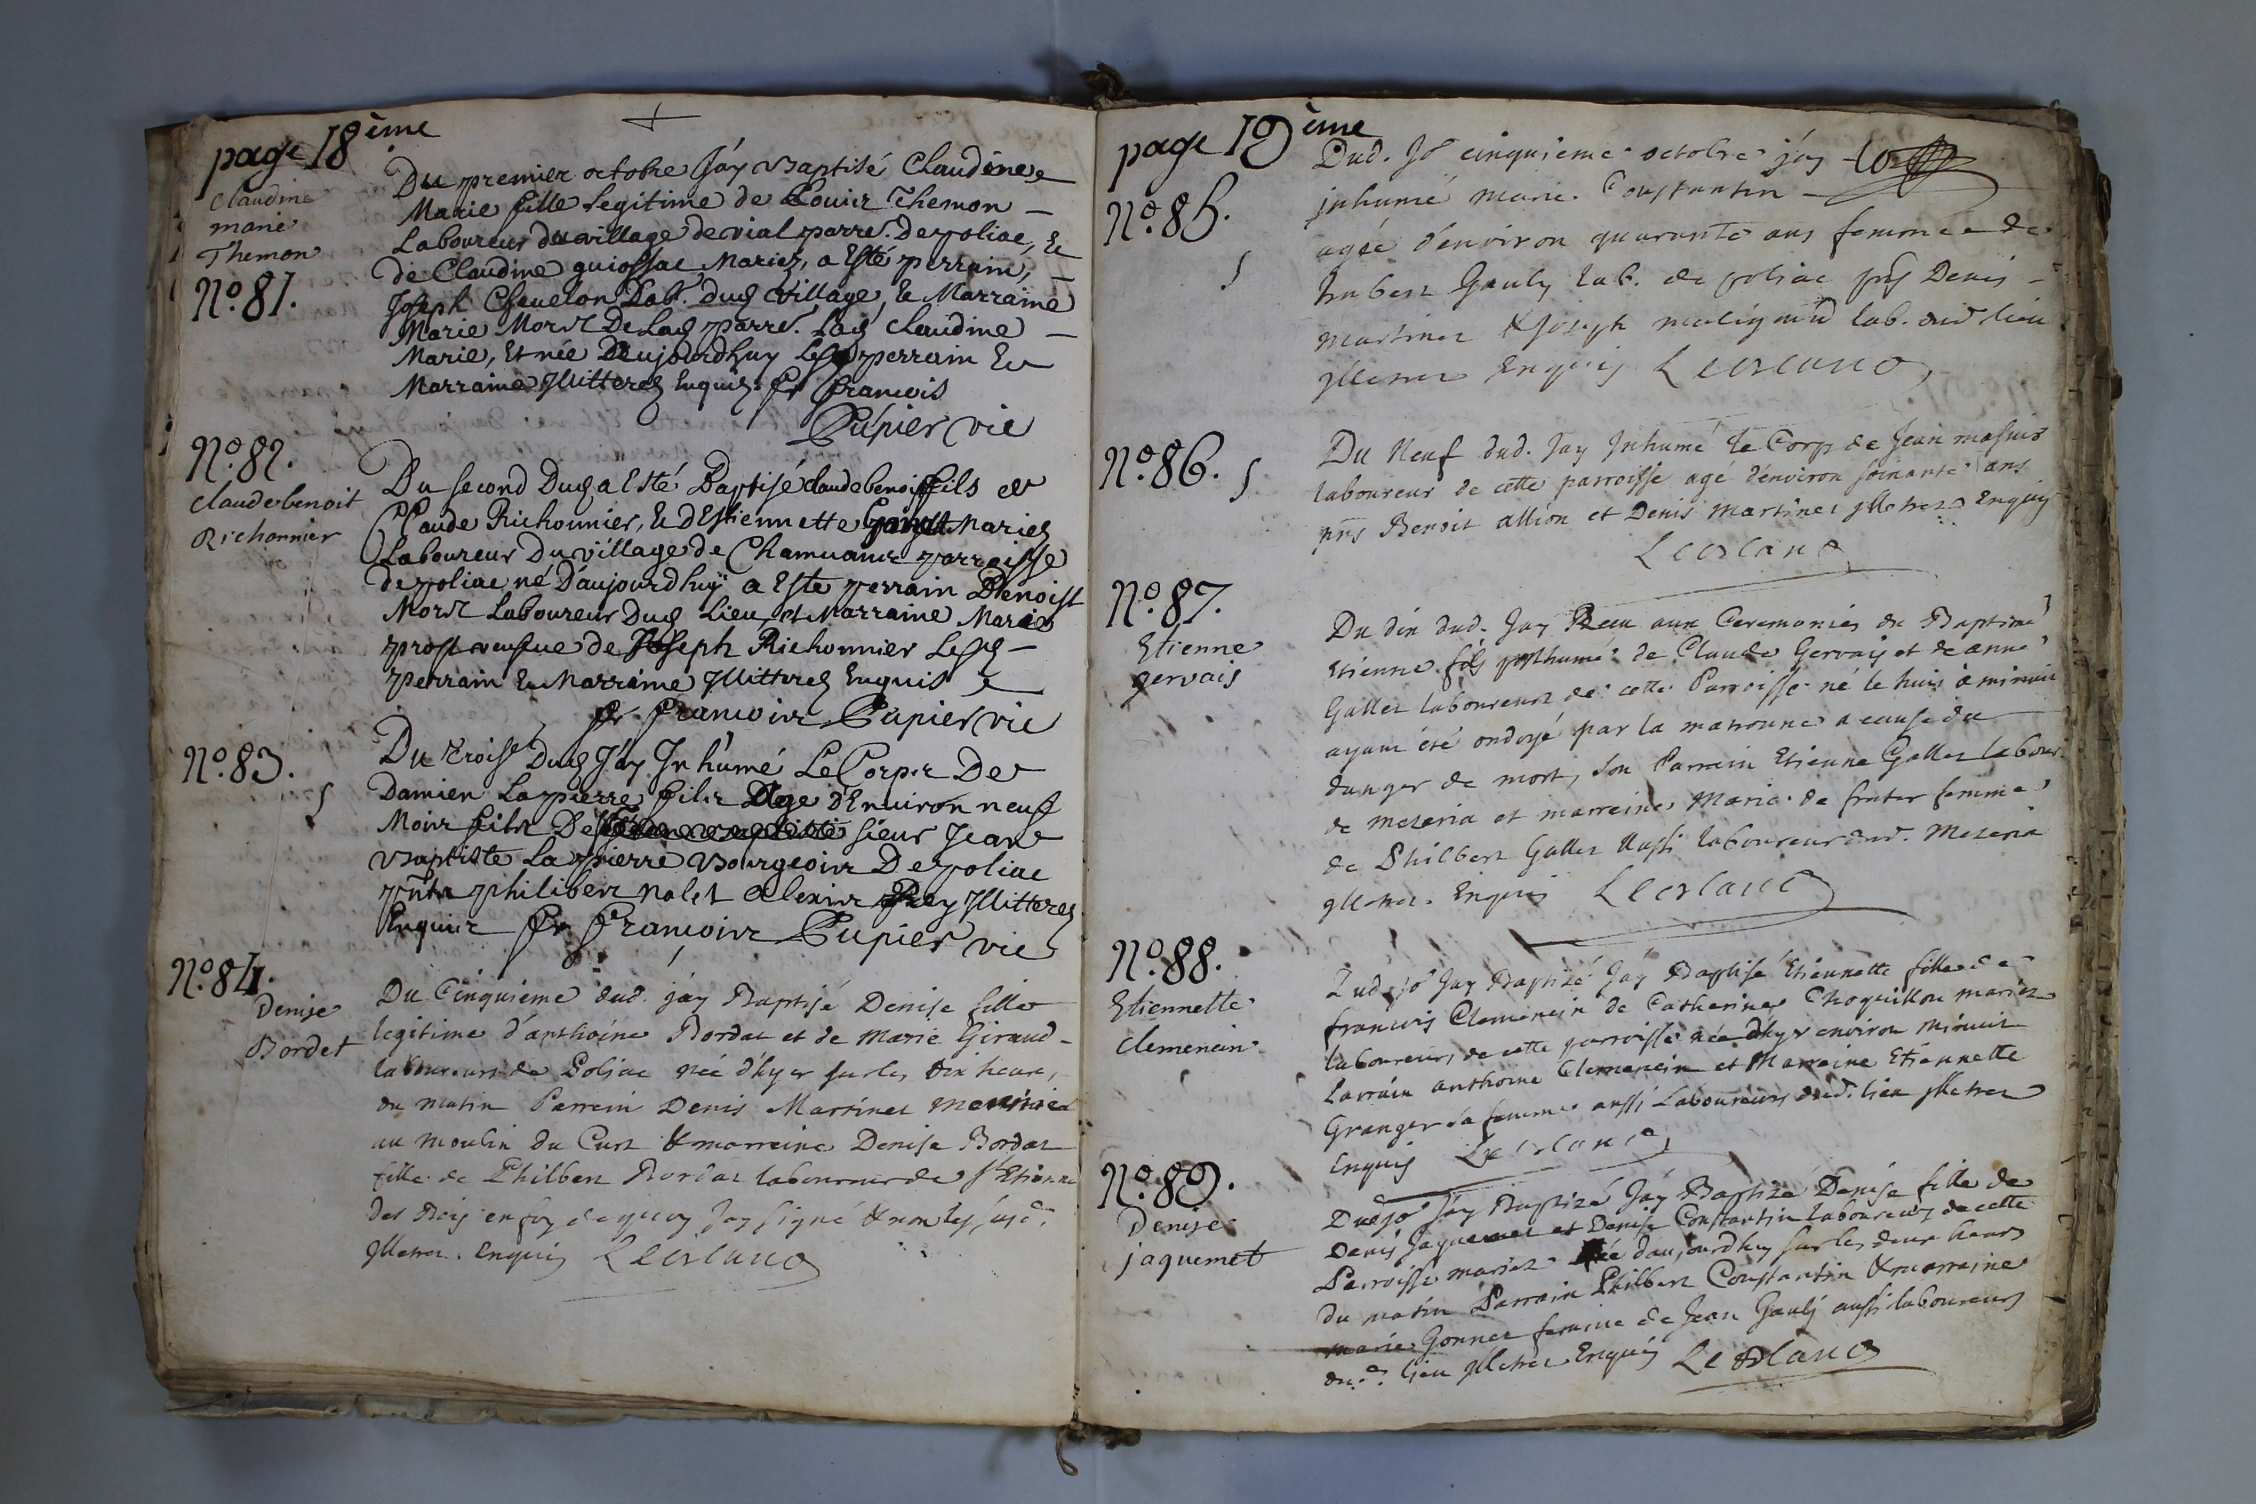 page 18 ème
claudine
marie
Themon
No. 81.
Du premier octobre J'áy Baptisé Claudine
Marie fille legitime de Louis Themon
Laboureur du village de vial parre. De poliac, Et
de Claudine guiossac Mariez, a Esté perrain,
Joseph Chevelon Lab. dud village, Et Marraine
Marie Morel De Lad parre. Lad claudine
Marie, Et née D'aujourdhuy Lesd perrain Et
Marraine Illitterez Enquis. fr françois
Pupier vic
No. 82.
Claude benoit
Richonnier
Du second Dud a Esté Baptisé claude benoit fils de
Claude Richonnier, Et d'Estiennette Mariez
Laboureur Du village de parroisse
de poliac né D'aujourdhuy a Este perrain Benoist
Morel Laboureur Dud Lieu, et Marraine Marie
prost veufue de Joseph Richonnier Lesd
perrain Et Marraine Illitterez Enquis
fr. françois Pupier vic
No. 83.
Du troise Dud J'áy Inhúmé Le Corps De
Damien Lapierre fils Age d'Environ neuf
Mois fils De sieur Jean
Baptiste Lapierre Bourgeois De poliac
pnts philibert nolet alexis Rey Illitterez
Enquis fr françois Pupier vic
No. 84.
Denise
Bordet
Du Cinquieme dud. jáy Baptisé Denise fille
legitime d'anthoine Bordat et de Marie Giraud
laboureurs de Poliac née d'hyer sur les dix heures
du matin Parrein Denis Martinet meunier
au moulin du Curt & marreine Denise Bordat
fille de Philbert Bordat laboureur de St Etienne
des Bois en foy de quoy Jay signé & non les susd.
Illetrez. Enquis Leblanc
page 19 ème
No. 85.
Dud. Jr cinquieme octobre jáy
jnhumé marie Constantin
agée d'environ quarante ans femme de
hubert Gauly lab. de poliac pns Denis
martinet & joseph lab. dud lieu
Illetrez Enquis Leblanc
No. 86.
Du Neuf dud. Jay Inhumé le Corps de Jean
laboureur de cette parroisse agé d'environ soixante ans
pns Benoit allion et Denis Martinet Illetrez Enquis
Leblanc
No. 87.
Etienne
gervais
Du dix dud. Jay Receu aux Ceremonies du Baptime
Etienne fils posthume de Claude Gervais et de anne
Gallet laboureurs de cette Parroisse né le huit a minuit
ayant été ondoyé par la matrone a cause du
danger de mort, son Parrein Etienne Gallet labour.
de mezeria et marreine Marie de fruter femme
de Philbert Gallet aussi laboureur dud. Mezeria
Illetrez. Enquis Leblanc
No. 88.
Etiennette
clemencin
Dud jr Jay Baptisé Jáy Baptisé Etiennette fille de
francois Clemencin de Catherine Choquillon mariez
laboureurs de cette parroisse née d'hyer environ minuit
Parrain anthoine Clemencin et Marreine Etiennette
Granger sa femme aussi Laboureurs dud. lieu Illetrez
Enquis Leblanc
No. 89.
Denise
jaquemet
Dud jr Jáy Baptizé Jáy Baptizé Denise fille de
Denis Jaquemet et Denise Constantin laboureurs de cette
Parroisse mariez née daujourdhuy sur les deux heures
du matin Parrain Philbert Constantin & marraine
marie Gonnet femme de Jean Gauly aussi laboureurs
dud. lieu Illetrez Enquis Leblanc